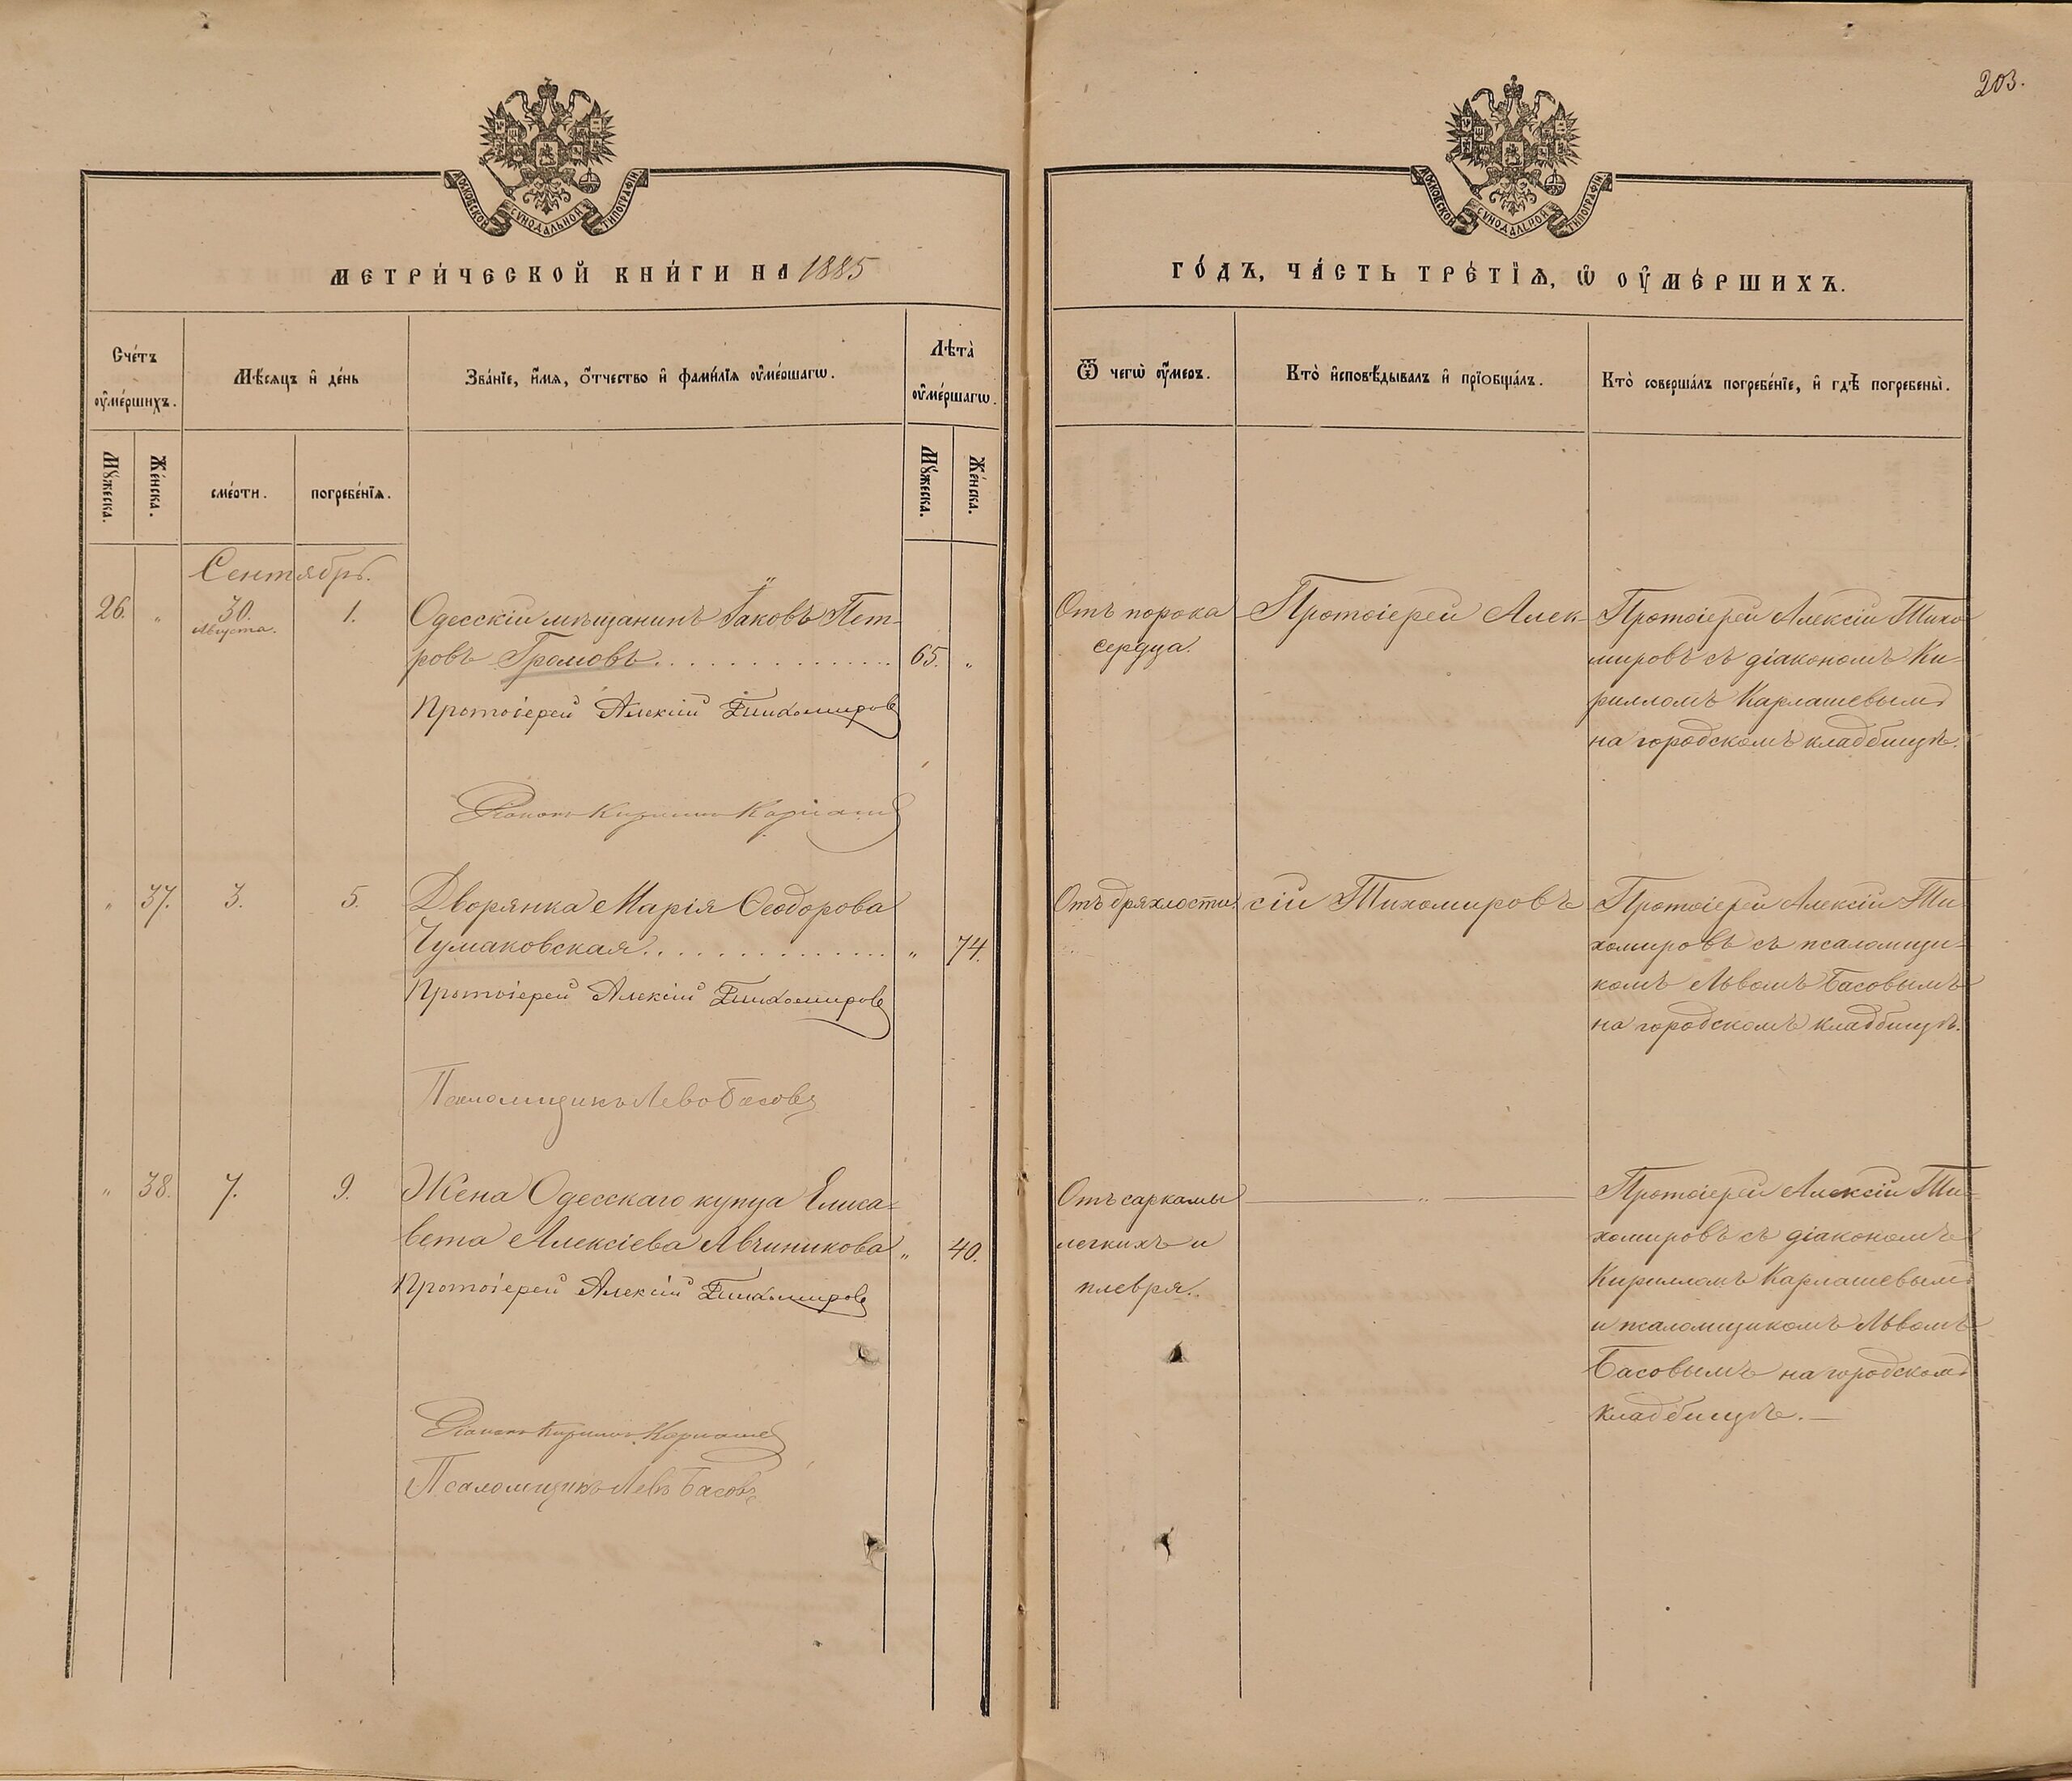 203.
МОСКОВСКОЙ СѴНОДАЛЬНОЙ ТИПОГРАФІИ
МОСКОВСКОЙ СѴНОДАЛЬНОЙ ТИПОГРАФІИ
МЕТРИ́ЧЕСКОЙ КНИ́ГИ НА 1885
ГО́ДЪ, ЧА́СТЬ ТРЕ́ТІѦ, Ѡ ОУ҆МЕ́РШИХЪ.
Сче́тъ оу҆ме́ршихъ.
Мѣ́сѧцъ и҆ де́нь
Зва́нїе, и҆́мѧ, ѻ҆́тчество и҆ фами́лїѧ оу҆ме́ршагѡ.
Лѣта̀ оу҆ме́ршагѡ.
Ѿ чегѡ̀ оу҆́меръ.
Кто̀ и҆сповѣ́дывалъ и҆ прїобща́лъ.
Кто̀ соверша́лъ погребе́нїе, и҆ гдѣ̀ погребены̀.
Мꙋ́жеска.
Же́нска.
сме́рти.
погребе́нїѧ.
Мꙋ́жеска.
Же́нска.
Сентябрь.
26. „ 30. Августа. 1. Одесскій мѣщанинъ Іаковъ Пет-
ровъ Громовъ. . . . . . . . . . . . . . 65. „
Протоіерей Алексій Тихомировъ
Діаконъ Кириллъ Карлашев
От порока
сердца.
Протоіерей Алек-
Протоіерей Алексій Тихо-
мировъ съ діакономъ Ки-
рилломъ Карлашевымъ
на городскомъ кладбищѣ.
„ 37. 3. 5. Дворянка Марія Ѳеодорова
Чумаковская. . . . . . . . . . . . . . „ 74.
Протоіерей Алексій Тихомировъ
Псаломщикъ Левъ Басовъ
Отъ дряхлости.
сій Тихомировъ
Протоіерей Алексій Ти-
хомировъ съ псаломщи-
комъ Львомъ Басовымъ
на городскомъ кладбищѣ.
„ 38. 7. 9. Жена Одесскаго купца Елиса-
вета Алексіева Авчиникова „ 40.
Протоіерей Алексій Тихомировъ
Діаконъ Кириллъ Карлашев
Псаломщикъ Левъ Басовъ
Отъ саркомы
легкихъ и
плевря.
„
Протоіерей Алексій Ти-
хомировъ съ діакономъ
Кирилломъ Карлашевымъ
и псаломщикомъ Львомъ
Басовымъ на городскомъ
кладбищѣ. —